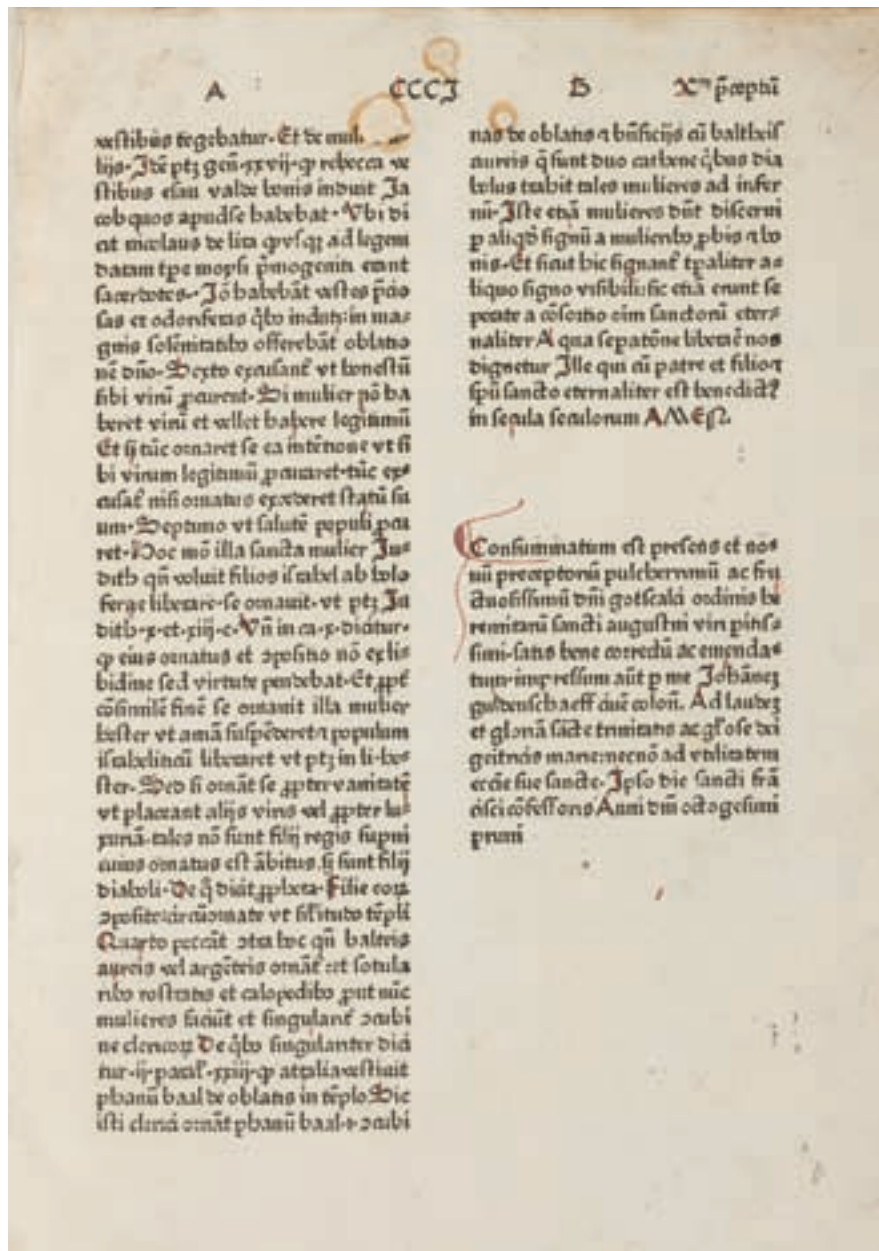 A CCCJ B Xm p̄ceptū
vestibus tegebatur. Et de muli
bijs. Idē ptꝫ geñ. xxvij. ꝙ rebecca ve
stibus esau valde bonis induit Ja
cob quos apud se habebat. Vbi di
cit nicolaus de lira ꝙ vsqꝫ ad legem
datam tp̄e moysi p̄mogeniti erant
sacerdotes. Jō habebāt vestes p̄cio
sas et odoriferas q̄bꝰ induti: in ma
gnis solēnitatibꝰ offerebāt oblatio
nē dño. Sexto excusant᷑ vt honestū
sibi virū ꝓcurent. Si mulier nō ha
beret virū et vellet habere legitimū
Et sj tūc ornaret se ea intētione vt si
bi virum legitimū ꝓcuraret. tūc ex⸗
cusat᷑ nisi ornatus excederet statū su
um. Septimo vt salutē populi ꝓcu
ret. Hoc mō illa sancta mulier Ju⸗
dith qñ voluit filios israhel ab holo
ferne liberare. se ornauit. vt ptꝫ Ju
dith. x. et. xiij. c. Vñ in ca. x. dicitur.
ꝙ eius ornatus et ꝯpositio nō ex li⸗
bidine sed virtute pendebat. Et ꝓpt᷑
cōsimilē finē se ornauit illa mulier
hester vt amā suspēderet ⁊ populum
israheliticū liberaret vt ptꝫ in li. he⸗
ster. Sed si ornāt se ꝓpter vanitatē
vt placeant alijs viris vel ꝓpter lu⸗
xuriā. tales nō sunt filij regis supni
cuius ornatus est ābitus. sj sunt filij
diaboli. De q̄ dicit ꝓpheta. Filie eoꝝ
ꝯposite: circūornate vt sil'itudo tēpli
Quarto peccāt ꝯtra hoc qñ balteis
aureis vel argēteis ornāt᷑: et sotula
ribꝰ rostratis et calopedibꝰ ꝓut nūc
mulieres faciūt et singularit᷑ ꝯcubi
ne clericoꝝ De q̄bꝰ singulariter dici
tur. ij. paral'. xxiij. ꝙ attalia vestiuit
phanū baal de oblatis in tēplo Sic
isti clerici ornāt phanū baal. ⁊ ꝯcubi
nas de oblatis ⁊ bñficijs cū baltheis
aureis q̄ sunt duo cathene q̄bus dia
bolus trahit tales mulieres ad infer
nū. Iste etiā mulieres dn̄t discerni
p aliqd̄ signū a mulieribꝰ ꝓbis ⁊ bo
nis. Et sicut hic signant᷑ tp̄aliter a⸗
liquo signo visibili: sic etiā erunt se
perate a cōsortio eciam sanctorū eter⸗
naliter A qua sepatōne liberare nos
dignetur Ille qui cū patre et filio ⁊
spū sancto eternaliter est benedictꝰ
in secula seculorum AMEN.
Consummatum est presens et nos⸗
uū preceptorū pulcherrimū ac fru
ctuosissimū dñi gotscalci ordinis he
remitarū sancti augustini viri piis⸗
simi. satis bene correctū ac emenda⸗
tum. impressum aūt p me Johānez
guldenschaeff ciuē colon̄. Ad laudeꝫ
et gloriā sācte trinitatis ac gl'ose dei
geitricis marie: necnō ad vtilitatem
ecc̄ie sue sancte. Ipso die sancti frā
cisci cōfessoris Anni dm̄ octogesimi
primi